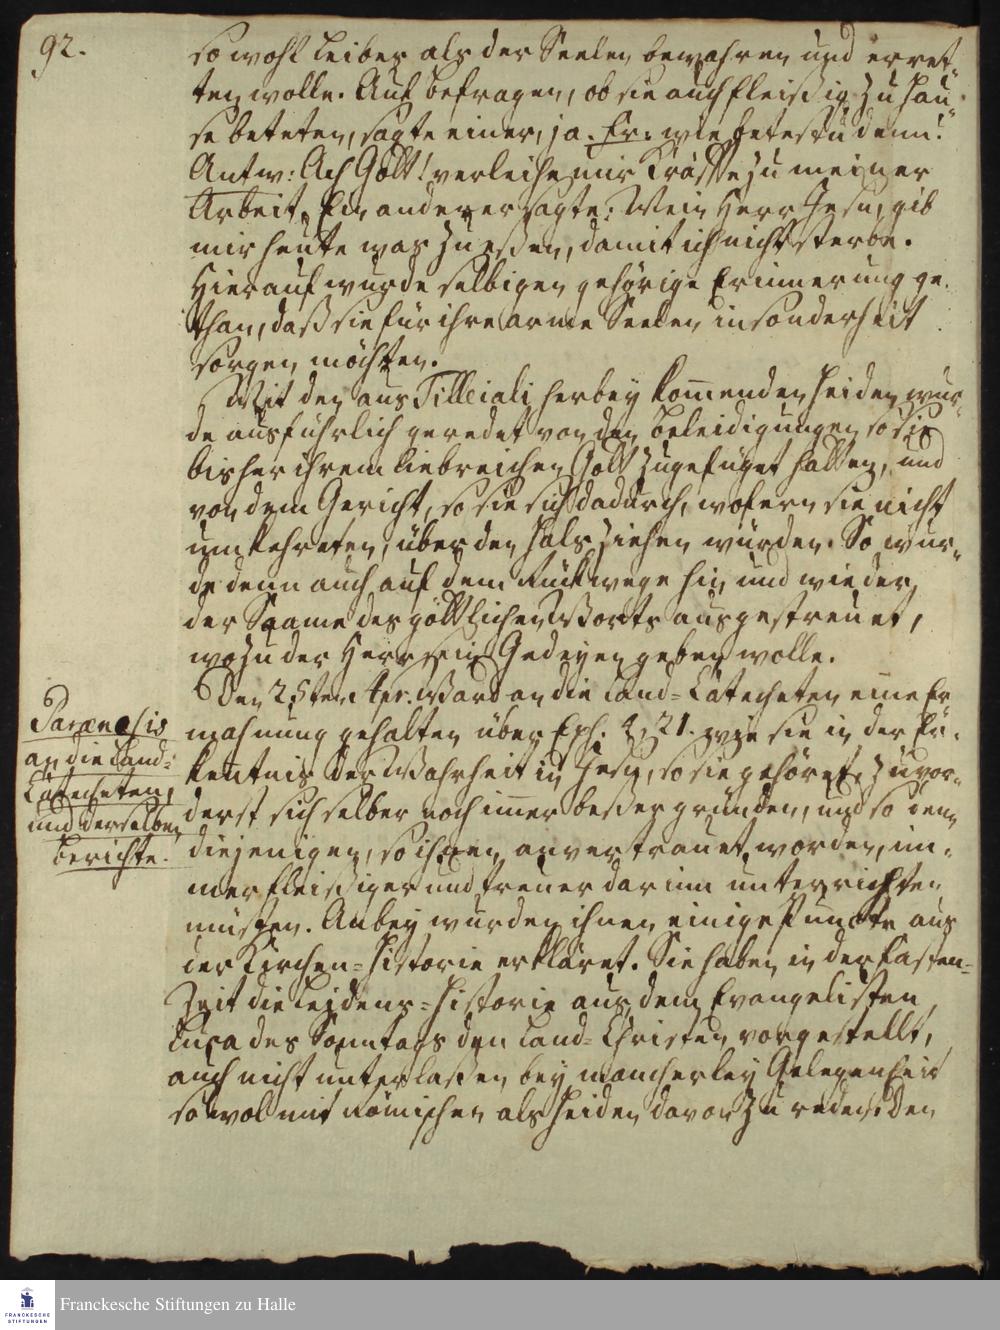 92.
so wohl Leibes als der Seelen bewahren und erret-
ten wolle. Auf befragen, ob sie auch fleißig zu Hau-
se beteten, sagte einer, ja. Fr: wie betest du denn?
Antw: Ach Gott! verleihe mir Kräffte zu meiner
Arbeit. Ein anderer sagte: Mein Herr Jesu, gib
mir heute was zu eßen, damit ich nicht sterbe.
Hierauf wurde selbigen gehörige Erinnerung ge-
than, daß sie für ihre arme Seelen insonderheit
sorgen möchten.
Mit den aus Tilleiali herbey kom̅enden Heiden wur-
de ausführlich geredet von den Beleidigungen so sie
bisher ihrem liebreichen Gott zugefüget hätten, und
von dem Gericht, so sie sich dadurch, wofern sie nicht
umkehreten, über den Hals ziehen würden. So wur-
de denn auch auf dem Rückwege hin und wieder
der Saame des göttlichen Worts ausgestreuet,
wozu der Herr sein Gedeyen geben wolle.
Den 25ten Apr. ward an die Land-Catecheten eine Er-
mahnung gehalten über Eph. 4, 21. wie sie in der Er-
kentnis der Wahrheit in Jesu, so sie gehöret, zuvor-
derst sich selber noch im̅er beßer gründen, und so denn
diejenigen, so ihnen anvertrauet worden, im-
mer fleißiger und treuer darinn unterrichten
müsten. Anbey wurden ihnen einige Puncte aus
der Kirchen-Historie erkläret. Sie haben in der Fasten-
Zeit die Leidens-Historie aus dem Evangelisten
Luca des Sonntags den Land-Christen vorgestellt,
auch nicht unterlaßen bey mancherley Gelegenheit
so wol mit Römischen als Heiden davon zu reden. Den
Parænesis
an die Land-
Catecheten,
und derselben
Berichte.
Franckesche Stiftungen zu Halle
FRANCKESCHE
STIFTUNGEN